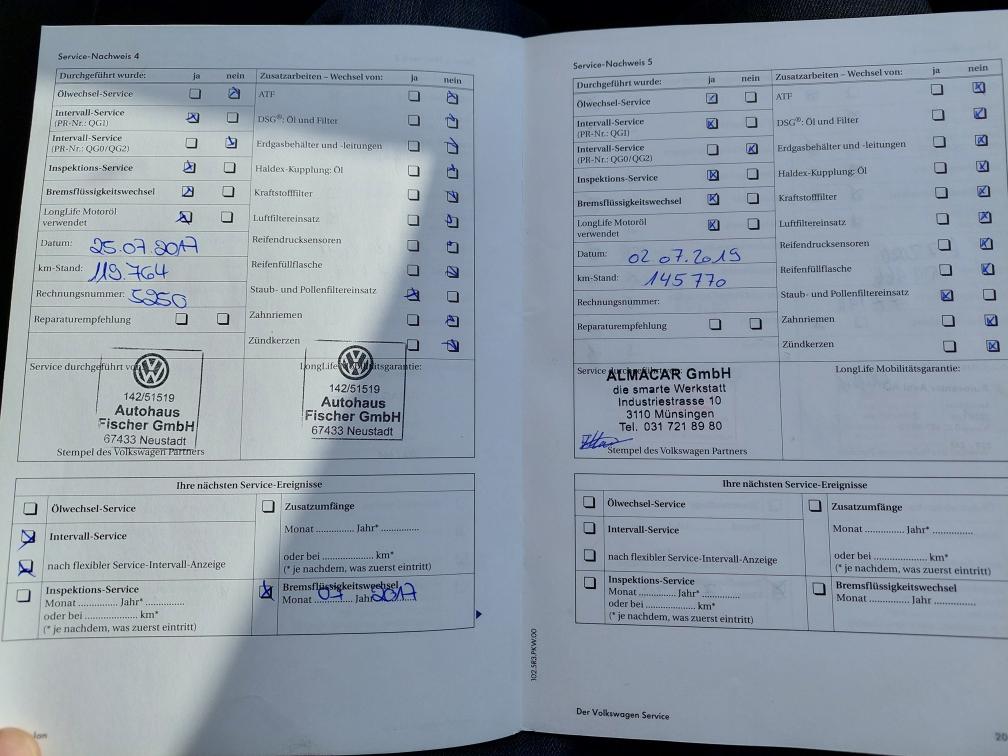 Service-Nachweis 4
Durchgeführt wurde: ja nein
Ölwechsel-Service
Intervall-Service
(PR-Nr.: QG1)
Intervall-Service
(PR-Nr.: QG0/QG2)
Inspektions-Service
Bremsflüssigkeitswechsel
LongLife Motoröl
verwendet
Datum: 25.07.2017
km-Stand: 119.764
Rechnungsnummer: 5250
Reparaturempfehlung
Zusatzarbeiten – Wechsel von: ja nein
ATF
DSG®: Öl und Filter
Erdgasbehälter und -leitungen
Haldex-Kupplung: Öl
Kraftstofffilter
Luftfiltereinsatz
Reifendrucksensoren
Reifenfüllflasche
Staub- und Pollenfiltereinsatz
Zahnriemen
Zündkerzen
Service durchgeführt von:
142/51519
Autohaus
Fischer GmbH
67433 Neustadt
Stempel des Volkswagen Partners
LongLife Mobilitätsgarantie:
142/51519
Autohaus
Fischer GmbH
67433 Neustadt
Ihre nächsten Service-Ereignisse
Ölwechsel-Service
Intervall-Service
nach flexibler Service-Intervall-Anzeige
Inspektions-Service
Monat ............. Jahr* .............
oder bei ................... km*
(* je nachdem, was zuerst eintritt)
Zusatzumfänge
Monat ............. Jahr* .............
oder bei ................... km*
(* je nachdem, was zuerst eintritt)
Bremsflüssigkeitswechsel
Monat 07 Jahr 2017
102.5R3.PKW.00
Service-Nachweis 5
Durchgeführt wurde: ja nein
Ölwechsel-Service
Intervall-Service
(PR-Nr.: QG1)
Intervall-Service
(PR-Nr.: QG0/QG2)
Inspektions-Service
Bremsflüssigkeitswechsel
LongLife Motoröl
verwendet
Datum: 02 07.2019
km-Stand: 145 770
Rechnungsnummer:
Reparaturempfehlung
Zusatzarbeiten – Wechsel von: ja nein
ATF
DSG®: Öl und Filter
Erdgasbehälter und -leitungen
Haldex-Kupplung: Öl
Kraftstofffilter
Luftfiltereinsatz
Reifendrucksensoren
Reifenfüllflasche
Staub- und Pollenfiltereinsatz
Zahnriemen
Zündkerzen
Service durchgeführt von:
ALMACAR GmbH
die smarte Werkstatt
Industriestrasse 10
3110 Münsingen
Tel. 031 721 89 80
Stempel des Volkswagen Partners
LongLife Mobilitätsgarantie:
Ihre nächsten Service-Ereignisse
Ölwechsel-Service
Intervall-Service
nach flexibler Service-Intervall-Anzeige
Inspektions-Service
Monat ............. Jahr* .............
oder bei ................... km*
(* je nachdem, was zuerst eintritt)
Zusatzumfänge
Monat ............. Jahr* .............
oder bei ................... km*
(* je nachdem, was zuerst eintritt)
Bremsflüssigkeitswechsel
Monat ............. Jahr .............
Der Volkswagen Service